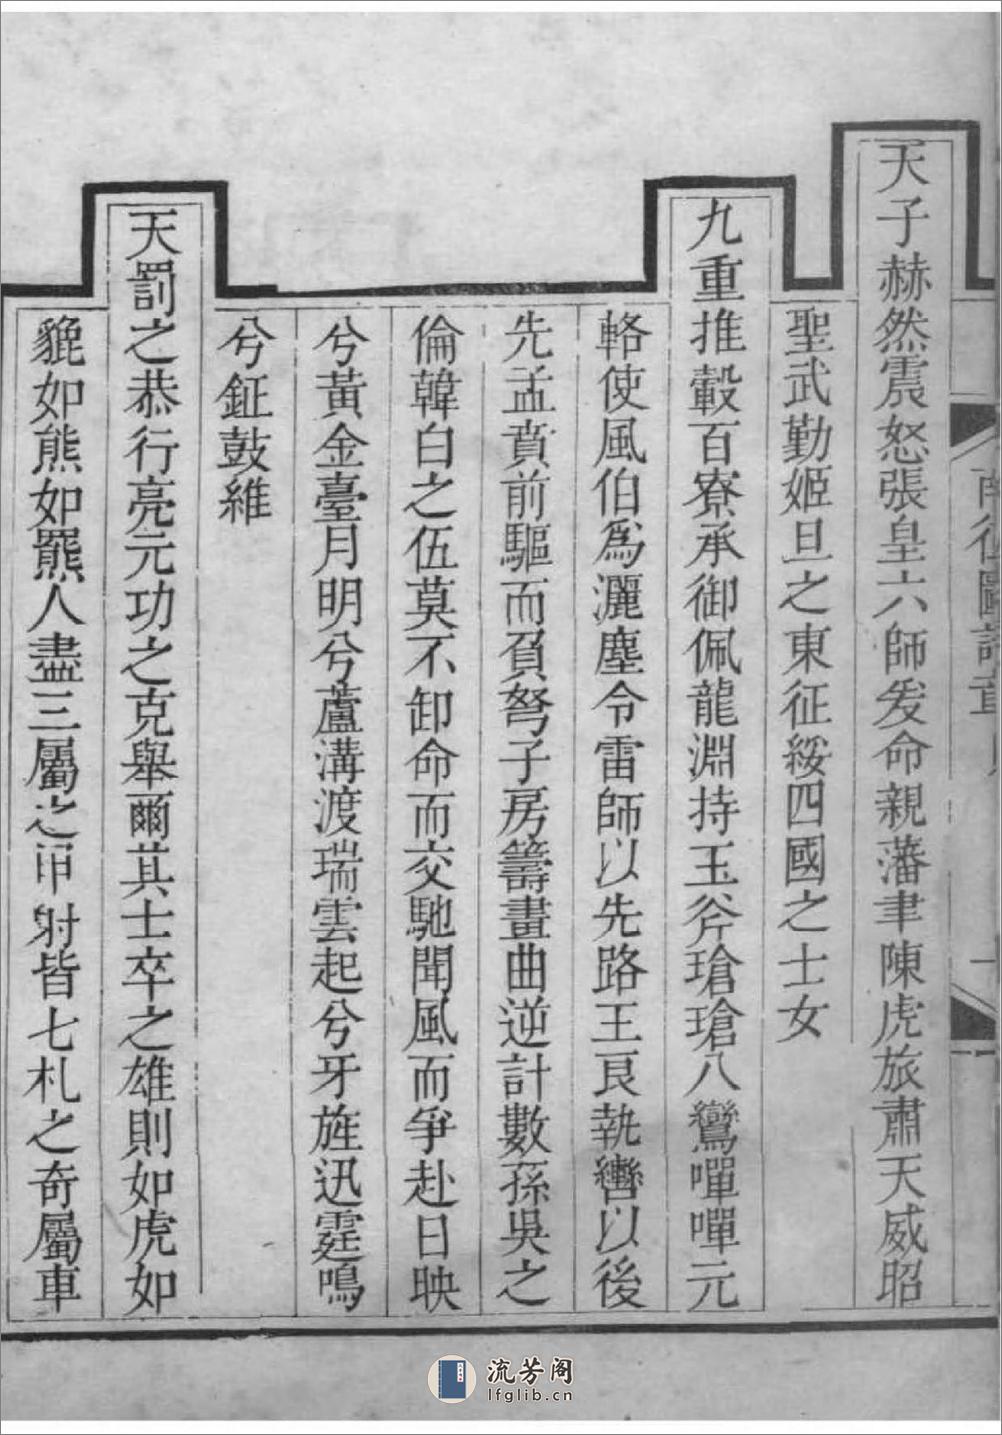 天子赫然震怒張皇六師爰命親藩聿陳虎旅肅天威昭
聖武勤姬旦之東征綏四國之士女
九重推轂百寮承御佩龍淵持玉斧瑲瑲八鸞嘽嘽元
輅使風伯爲灑塵令雷師以先路王良執轡以後
先孟賁前驅而負弩子房籌畫曲逆計數孫吳之
倫韓白之伍莫不卸命而交馳聞風而爭赴日映
兮黃金臺月明兮蘆溝渡瑞雲起兮牙旌迅霆鳴
兮鉦鼓維
天罰之恭行亮元功之克舉爾其士卒之雄則如虎如
貔如熊如羆人盡三屬之甲射皆七札之奇屬車
流芳阁
lfglib.cn